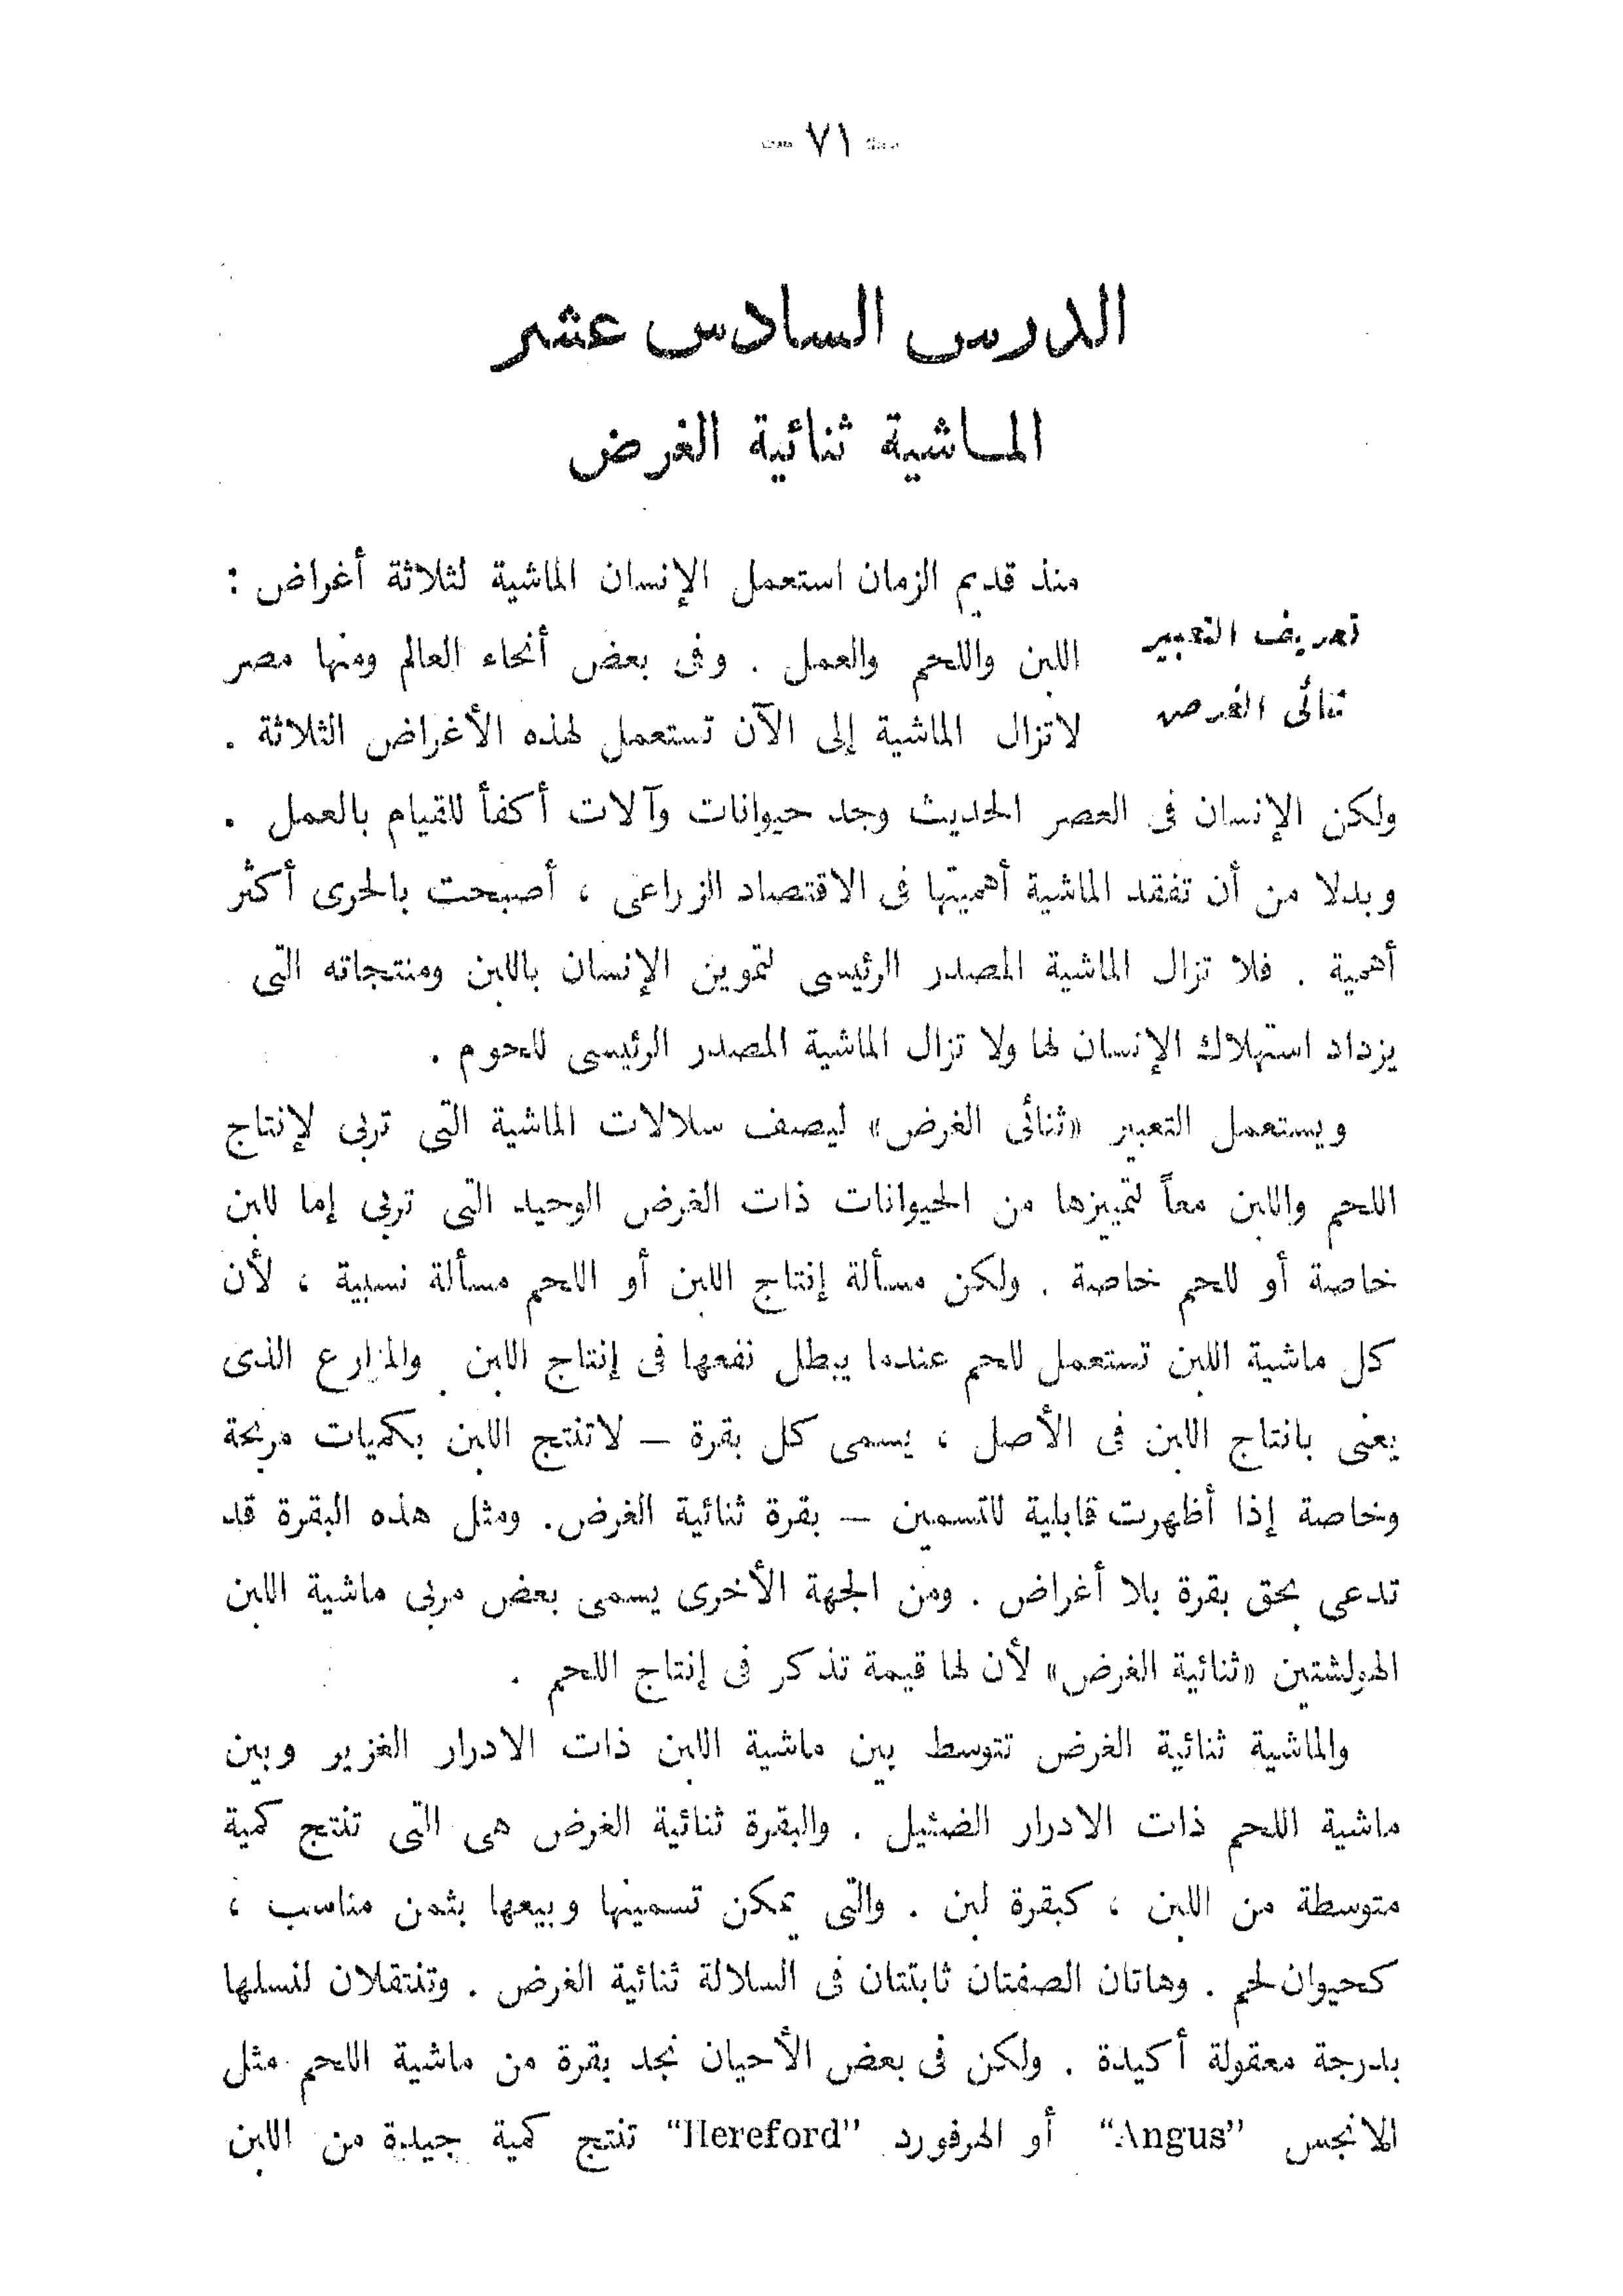 — ٧١ —
الدرس السادس عشر
الماشية ثنائية الغرض
تعريف التعبير
ثنائى الغرض
منذ قديم الزمان استعمل الإنسان الماشية لثلاثة أغراض :
اللبن واللحم والعمل . وفى بعض أنحاء العالم ومنها مصر
لاتزال الماشية إلى الآن تستعمل لهذه الأغراض الثلاثة .
ولكن الإنسان فى العصر الحديث وجد حيوانات وآلات أكفأ للقيام بالعمل .
وبدلا من أن تفقد الماشية أهميتها فى الاقتصاد الزراعى ، أصبحت بالحرى أكثر
أهمية . فلا تزال الماشية المصدر الرئيسى لتموين الإنسان باللبن ومنتجاته التى
يزداد استهلاك الإنسان لها ولا تزال الماشية المصدر الرئيسى للحوم .
ويستعمل التعبير «ثنائى الغرض» ليصف سلالات الماشية التى تربى لإنتاج
اللحم واللبن معاً لتمييزها من الحيوانات ذات الغرض الوحيد التى تربى إما للبن
خاصة أو للحم خاصة . ولكن مسألة إنتاج اللبن أو اللحم مسألة نسبية ، لأن
كل ماشية اللبن تستعمل للحم عندما يبطل نفعها فى إنتاج اللبن . والمزارع الذى
يعنى بانتاج اللبن فى الأصل ، يسمى كل بقرة — لاتنتج اللبن بكميات مربحة
وخاصة إذا أظهرت قابلية للتسمين — بقرة ثنائية الغرض. ومثل هذه البقرة قد
تدعى بحق بقرة بلا أغراض . ومن الجهة الأخرى يسمى بعض مربى ماشية اللبن
الهولشتين «ثنائية الغرض» لأن لها قيمة تذكر فى إنتاج اللحم .
والماشية ثنائية الغرض تتوسط بين ماشية اللبن ذات الادرار الغزير وبين
ماشية اللحم ذات الادرار الضئيل . والبقرة ثنائية الغرض هى التى تنتج كمية
متوسطة من اللبن ، كبقرة لبن . والتى يمكن تسمينها وبيعها بثمن مناسب ،
كحيوان لحم . وهاتان الصفتان ثابتتان فى السلالة ثنائية الغرض . وتنتقلان لنسلها
بدرجة معقولة أكيدة . ولكن فى بعض الأحيان نجد بقرة من ماشية اللحم مثل
الانجس "Angus" أو الهرفورد "Hereford" تنتج كمية جيدة من اللبن